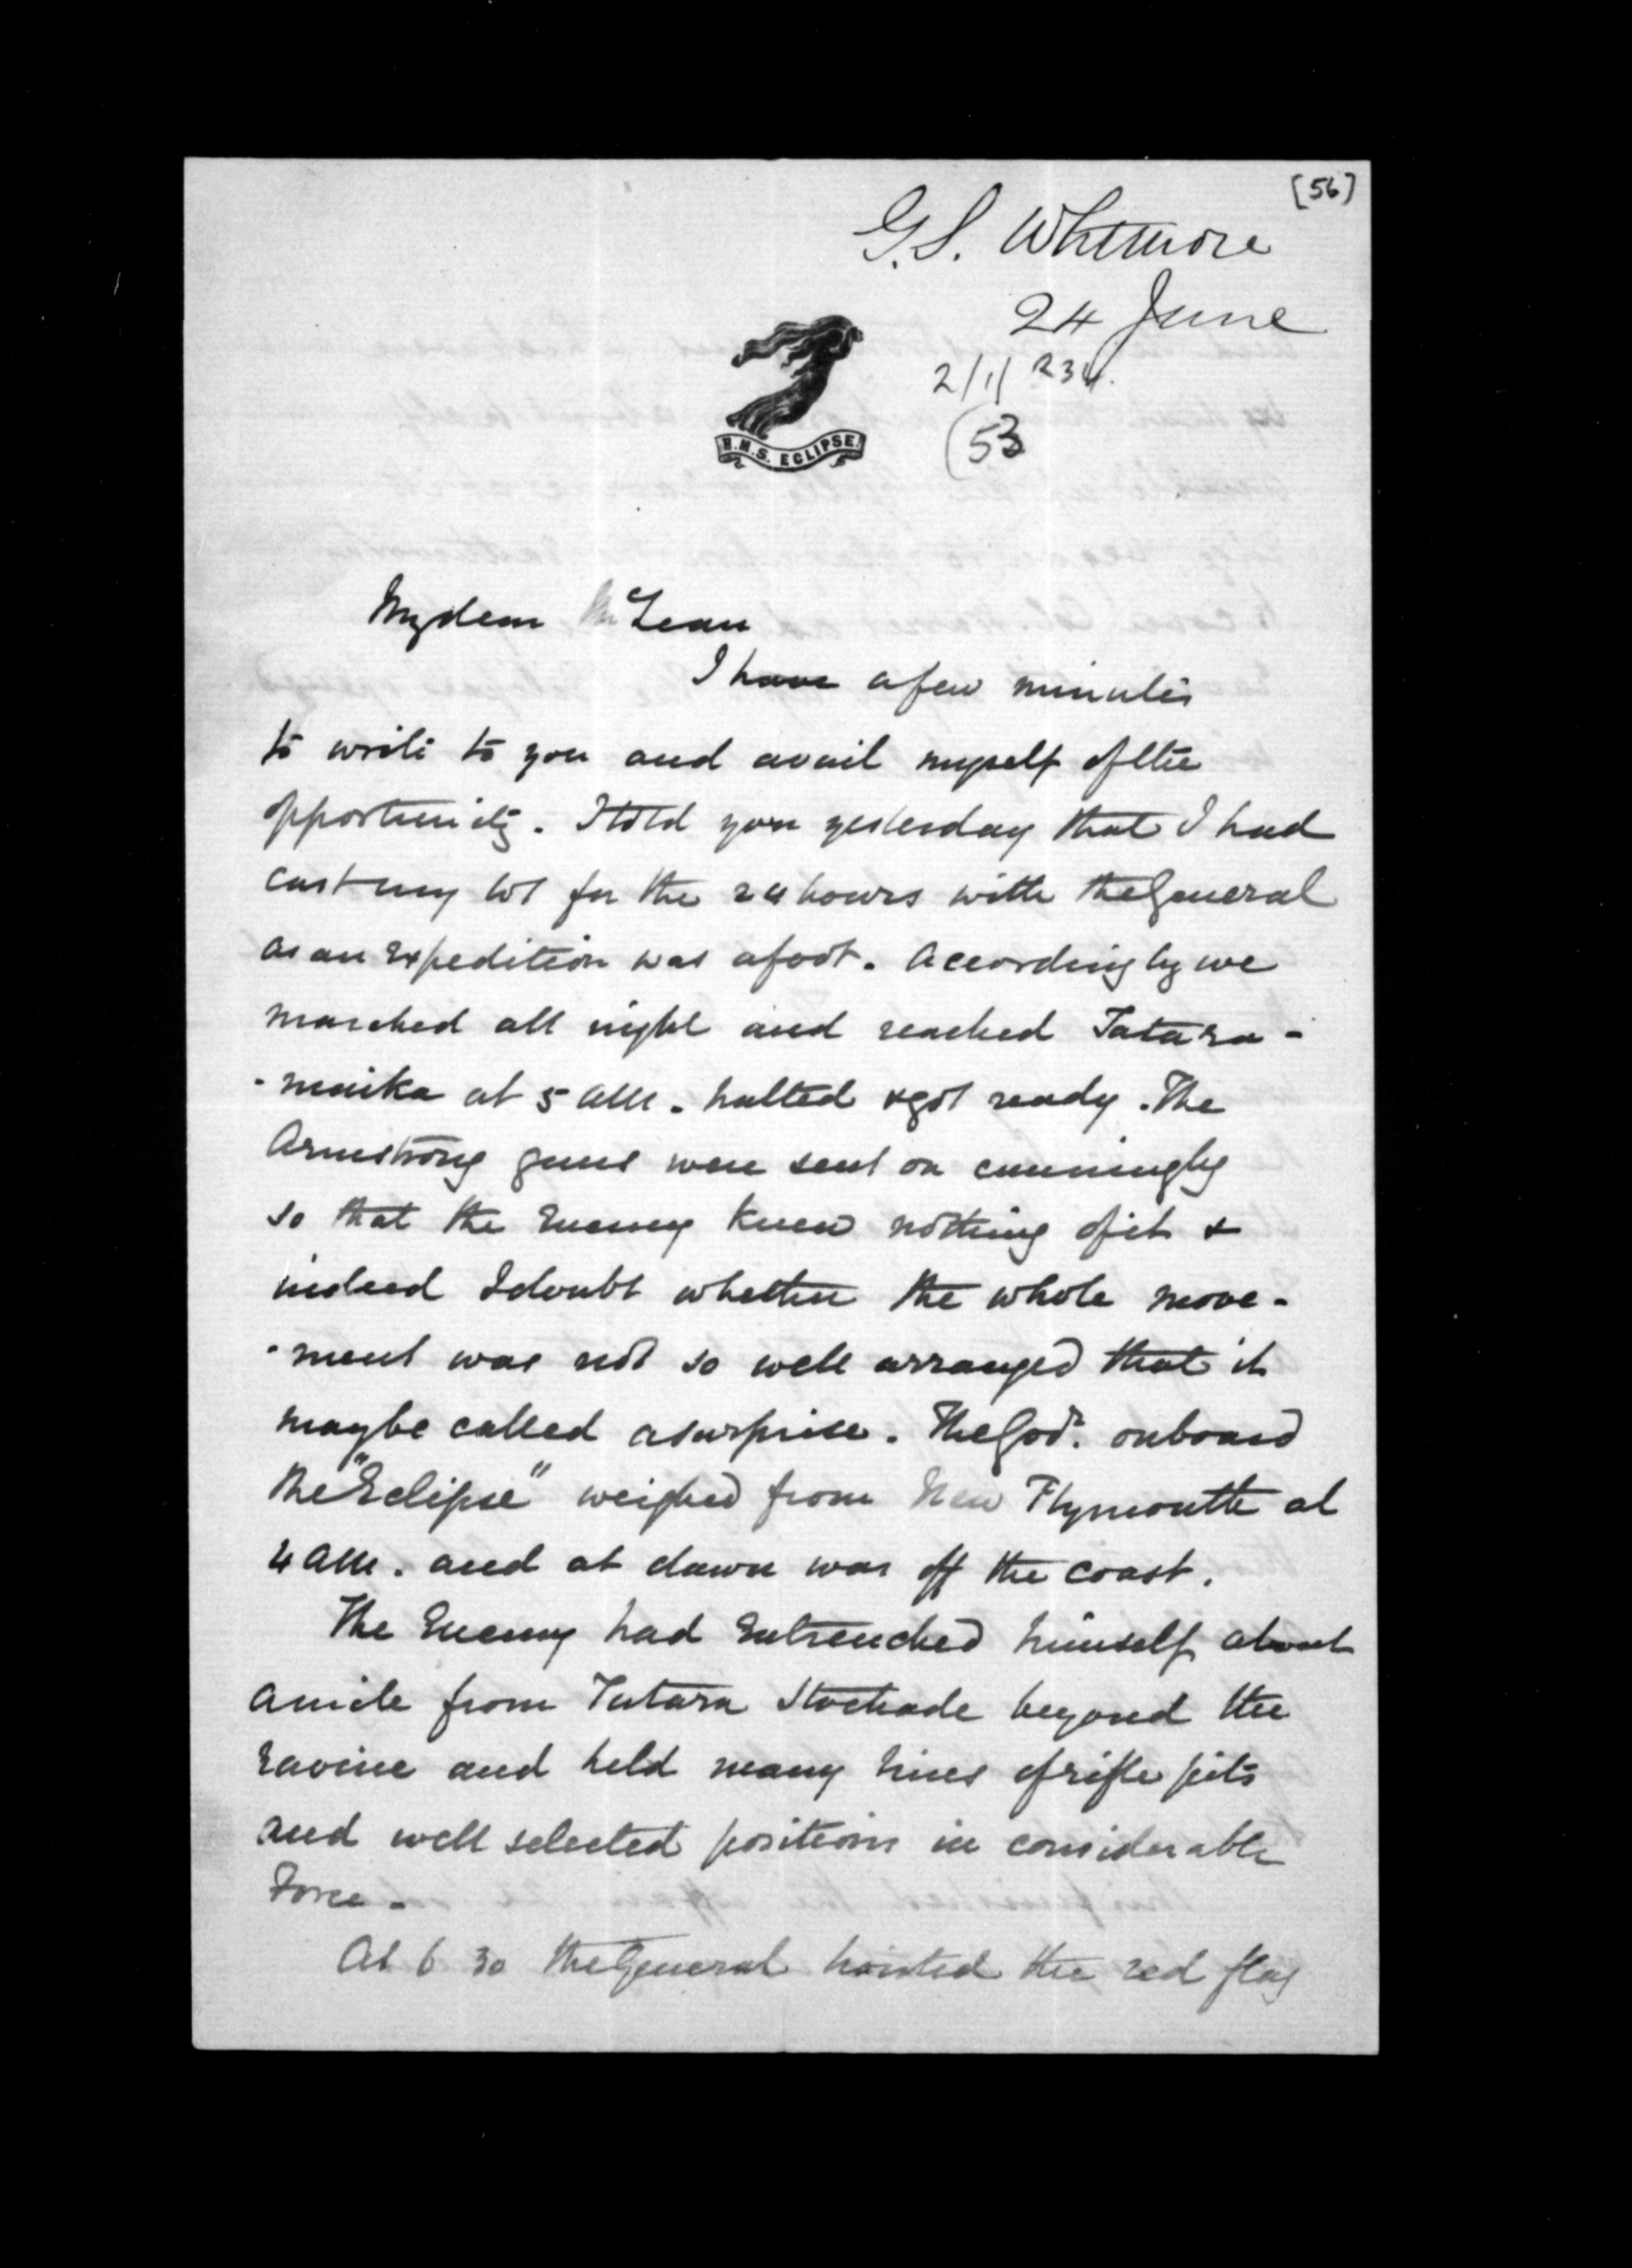 [56]
G.S. Whitmore
24 June
2/1/ 234.
(53
H.M.S. ECLIPSE.
My dear McLean
I have a few minutes
to write to you and avail myself of the
opportunity. I told you yesterday that I had
cast my lot for the 24 hours with the General
as an Expedition was afoot. Accordingly we
marched all night and reached Tatara-
-maika at 5 AM. halted & got ready. The
Armstrong guns were sent on cunningly
so that the Enemy knew nothing of it &
indeed I doubt whether the whole move-
-ment was not so well arranged that it
may be called a surprise. The Govr. onboard
the "Eclipse" weighed from New Plymouth at
4 AM. and at dawn was off the coast.
The Enemy had Entrenched himself about
a mile from Tatara Stockade beyond the
ravine and held many lines of rifle pits
and well selected positions in considerable
Force -
At 6 30 the General hoisted the red flag